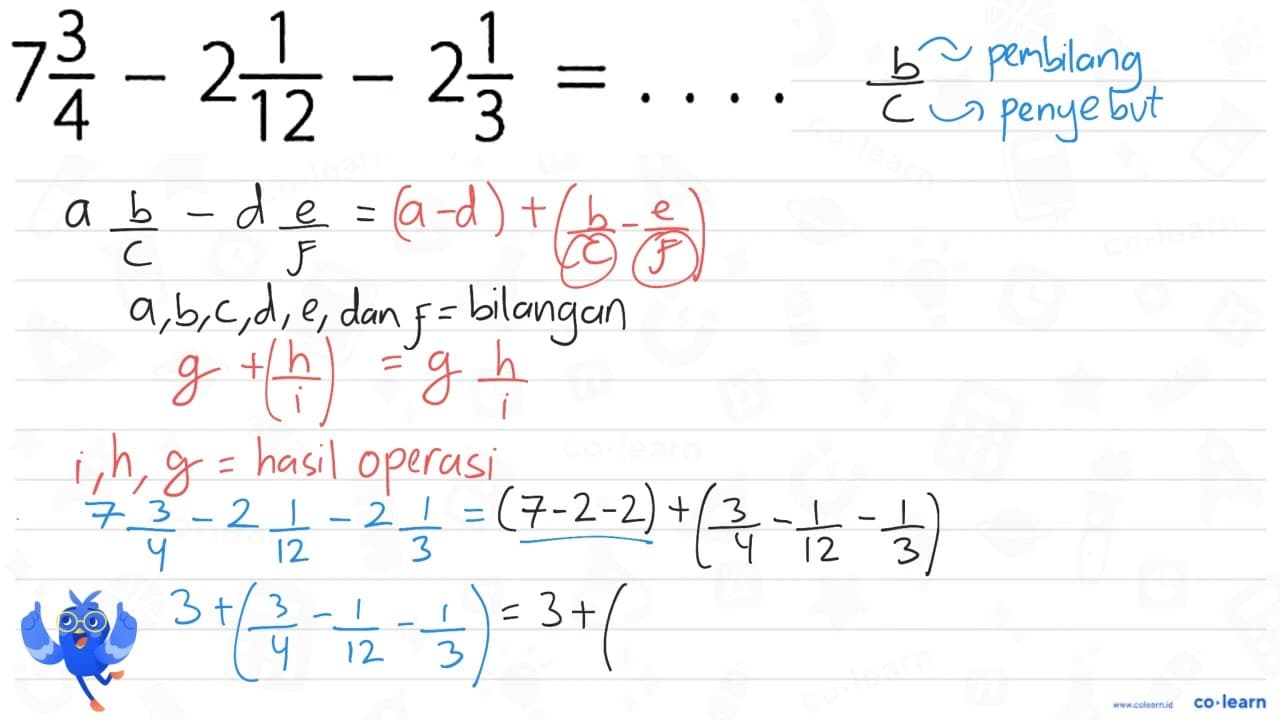 7 3/4 − 2 1/12 − 2 1/3 = . . . .
b/c pembilang
penyebut
a b/c − d e/f = (a−d) + (b/c − e/f)
a, b, c, d, e, dan f = bilangan
g + (h/i) = g h/i
i, h, g = hasil operasi
7 3/4 − 2 1/12 − 2 1/3 = (7−2−2) + (3/4 − 1/12 − 1/3)
3 + (3/4 − 1/12 − 1/3) = 3 + (
www.colearn.id co·learn